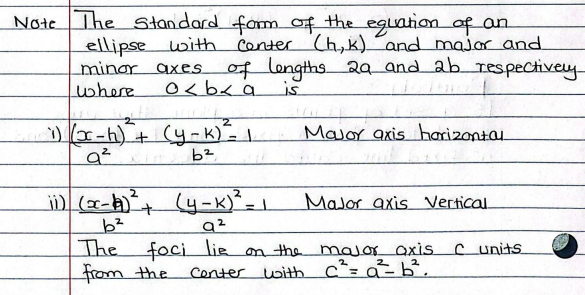 Note The standard form of the equation of an
ellipse with center (h,k) and major and
minor axes of lengths 2a and 2b respectively
where 0<b<a is
i) (x-h)²/a² + (y-k)²/b² = 1 Major axis horizontal
ii) (x-h)²/b² + (y-k)²/a² = 1 Major axis Vertical
The foci lie on the major axis c units
from the center with c² = a² - b².